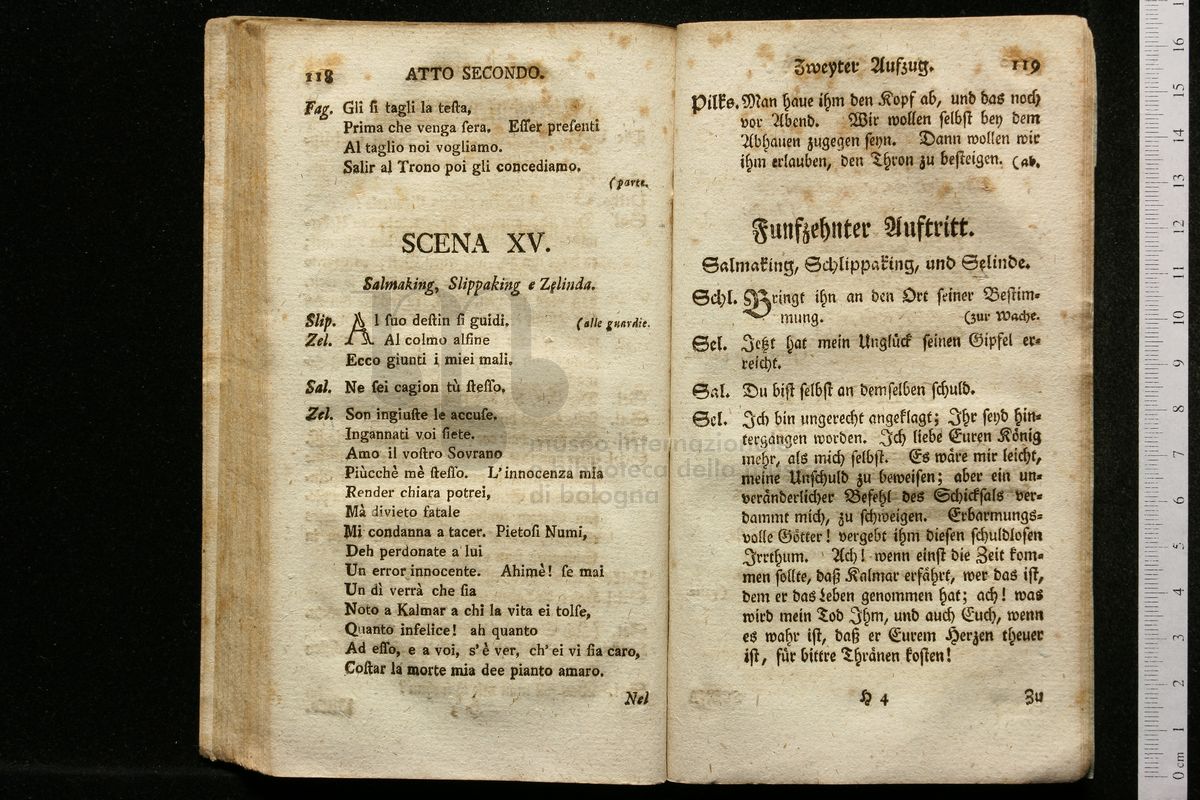 118 ATTO SECONDO.
Fag. Gli ſi tagli la teſta,
Prima che venga ſera. Eſſer preſenti
Al taglio noi vogliamo.
Salir al Trono poi gli concediamo.
(parte.
SCENA XV.
Salmaking, Slippaking e Zelinda.
Slip. Al ſuo deſtin ſi guidi. (alle guardie.
Zel. Al colmo alfine
Ecco giunti i miei mali.
Sal. Ne ſei cagion tù ſteſſo.
Zel. Son ingiuſte le accuſe.
Ingannati voi ſiete.
Amo il voſtro Sovrano
Piùcchè mè ſteſſo. L'innocenza mia
Render chiara potrei,
Mà divieto fatale
Mi condanna a tacer. Pietoſi Numi,
Deh perdonate a lui
Un error innocente. Ahimè! ſe mai
Un dì verrà che ſia
Noto a Kalmar a chi la vita ei tolſe,
Quanto infelice! ah quanto
Ad eſſo, e a voi, s'è ver, ch'ei vi ſia caro,
Coſtar la morte mia dee pianto amaro.
Nel
Zweyter Aufzug. 119
Pilks. Man haue ihm den Kopf ab, und das noch
vor Abend. Wir wollen ſelbſt bey dem
Abhauen zugegen ſeyn. Dann wollen wir
ihm erlauben, den Thron zu beſteigen. (ab.
Funfzehnter Auftritt.
Salmaking, Schlippaking, und Selinde.
Schl. Bringt ihn an den Ort ſeiner Beſtim-
mung. (zur Wache.
Sel. Jetzt hat mein Unglück ſeinen Gipfel er-
reicht.
Sal. Du biſt ſelbſt an demſelben ſchuld.
Sel. Ich bin ungerecht angeklagt; Ihr ſeyd hin-
tergangen worden. Ich liebe Euren König
mehr, als mich ſelbſt. Es wäre mir leicht,
meine Unſchuld zu beweiſen; aber ein un-
veränderlicher Befehl des Schickſals ver-
dammt mich, zu ſchweigen. Erbarmungs-
volle Götter! vergebt ihm dieſen ſchuldloſen
Irrthum. Ach! wenn einſt die Zeit kom-
men ſollte, daß Kalmar erfährt, wer das iſt,
dem er das Leben genommen hat; ach! was
wird mein Tod Ihm, und auch Euch, wenn
es wahr iſt, daß er Eurem Herzen theuer
iſt, für bittre Thränen koſten!
H 4 Zu
museo internazionale
biblioteca della musica
di bologna
0 cm 1 2 3 4 5 6 7 8 9 10 11 12 13 14 15 16